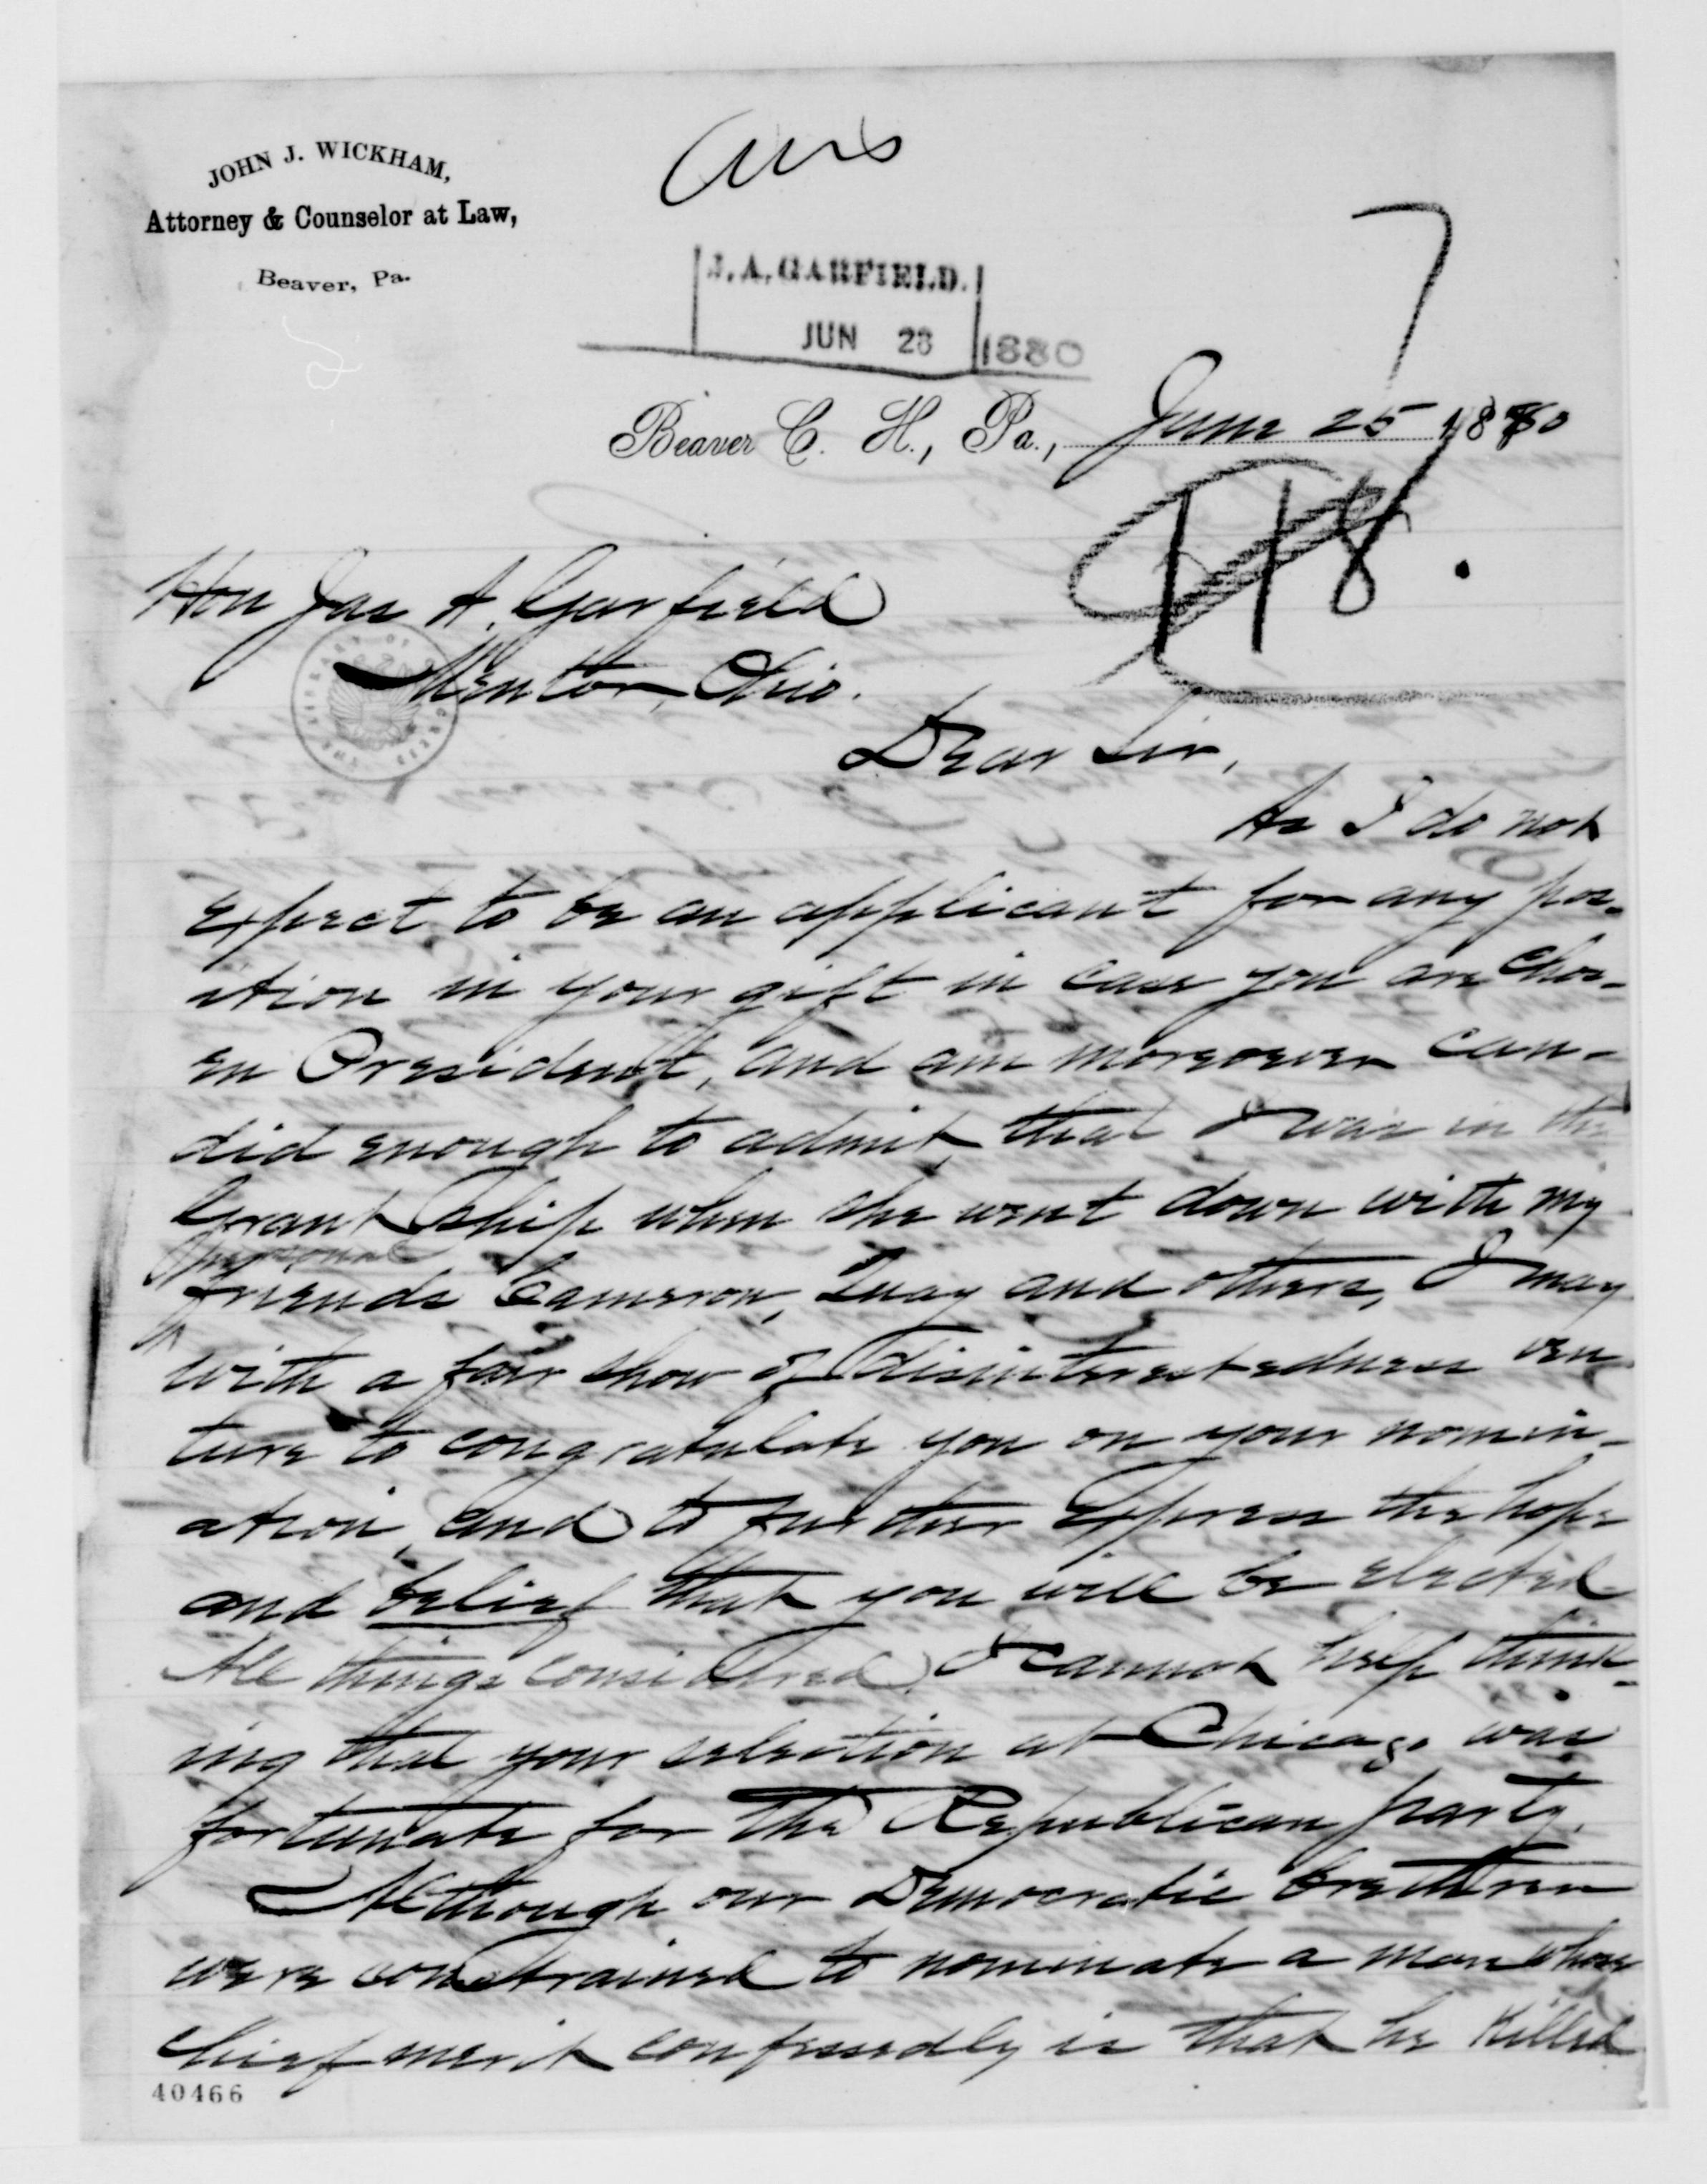 JOHN J. WICKHAM,
Attorney & Counselor at Law,
Beaver, Pa.
Ans
J. A. GARFIELD.
JUN 28 1880
7
Beaver C. H., Pa., June 25 1880
118.
Hon Jas A. Garfield
Mentor, Ohio.
Dear Sir,
As I do not
expect to be an applicant for any pos-
ition in your gift in case you are chos-
en President, and am moreover can-
did enough to admit that I was in the
Grant Ship when she went down with my
personal
friends Cameron, Quay and others, I may
with a fair show of disinterestedness ven
ture to congratulate you on your nomin-
ation, and to further express the hope
and belief that you will be elected
All things considered, I cannot help think-
ing that your selection at Chicago was
fortunate for the Republican party.
Although our Democratic brethren
were constrained to nominate a man whose
chief merit confessedly is that he killed
40466